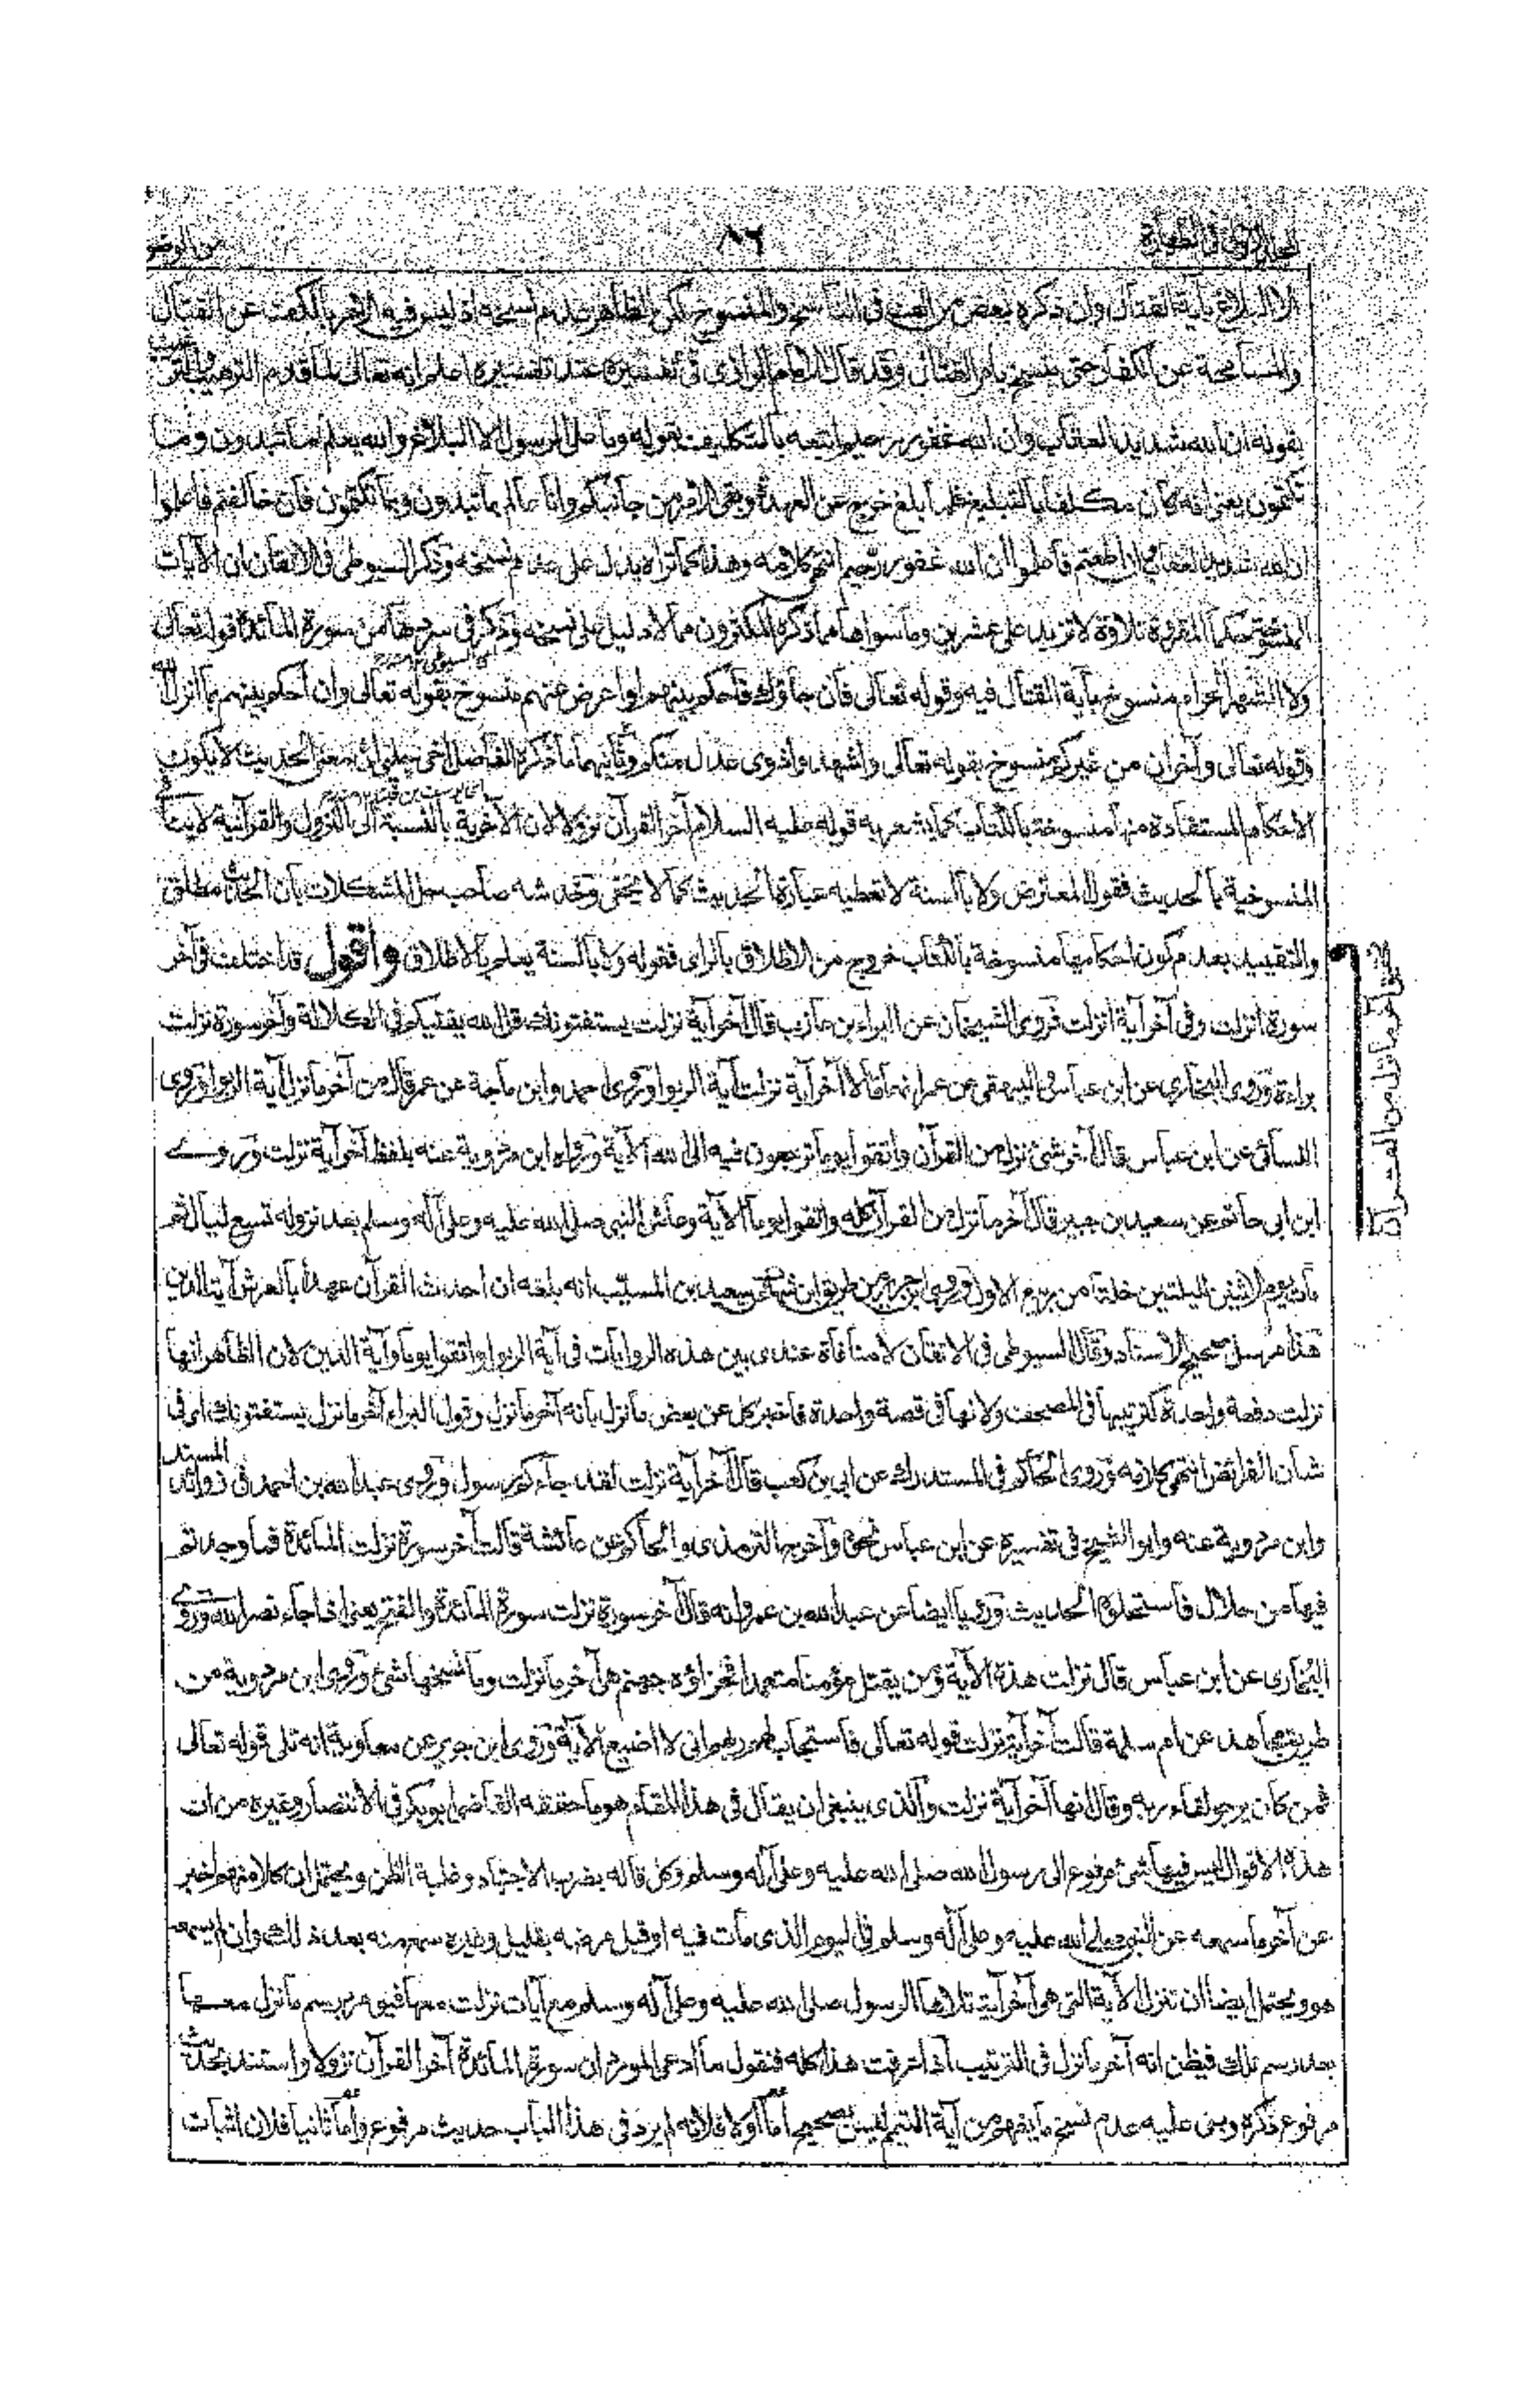 المجلد الأول فى الطهارة
٨٦
من الوضو
الا البلاغ بآية القتال وان ذكره بعض من الف فى الناسخ والمنسوخ لكن الظاهر عدم نسخه اذ ليس فيه الامر بالكف عن القتال
والمسامحة عن الكفار حتى ينسخ بامر القتال وقد قال الامام الرازى فى تفسيره عند تفسيره اعلم انه تعالى لما قدم الترهيب والترغيب
بقوله ان الله شديد العقاب وان الله غفور رحيم اتبعه بالتكليف بقوله وما على الرسول الا البلاغ والله يعلم ما تبدون وما
تكتمون يعنى انه كان مكلفا بالتبليغ فلما بلغ خرج عن العهدة وبقى الامر من جانبكم وانا عالم بما تبدون وبما تكتمون فان خالفتم فاعلموا
ان الله شديد العقاب وان اطعتم فاعلموا ان الله غفور رحيم انتهى كلامه وهذا كما تراه يدل على عدم نسخه وذكر السيوطى فى الاتقان ان الآيات
المنسوخة حكما المقررة تلاوة لا تزيد على عشرين وما سواها مما ذكره المكثرون مما لا دليل على نسخه وذكر فى سردها من سورة المائدة قوله تعالى
ولا الشهر الحرام منسوخ بآية القتال فيه وقوله تعالى فان جاؤك فاحكم بينهم او اعرض عنهم منسوخ بقوله تعالى وان احكم بينهم بما انزل الله
وقوله تعالى وآخران من غيركم منسوخ بقوله تعالى واشهدوا ذوى عدل منكم وثانيهما ما ذكره الفاضل اخى چلپى ان معنى الحديث لا يكون
الاحكام المستفادة منها منسوخة بالكتاب كما يشعر به قوله عليه السلام آخر القرآن نزولا لان الآخرية بالنسبة الى النزول والقرآنية لا ينا
المنسوخية بالحديث فقول المعترض ولا بالسنة لا تعطيه عبارة الحديث كما لا يخفى وخدشه صاحب حل المشكلات بان الحديث مطلق
والتقييد بعدم كون احكامها منسوخة بالكتاب خروج من الاطلاق بالراى فقوله ولا بالسنة يعلم بالاطلاق واقول قد اختلف فى آخر
سورة انزلت وفى آخر آية انزلت فروى الشيخان عن البراء بن عازب قال آخر آية نزلت يستفتونك قل الله يفتيكم فى الكلالة وآخر سورة نزلت
براءة وروى البخارى عن ابن عباس والبيهقى عن عمر انهما قالا آخر آية نزلت آية الربوا وروى احمد وابن ماجة عن عمر قال من آخر ما نزل آية الربوا وروى
النسائى عن ابن عباس قال آخر شئ نزل من القرآن واتقوا يوما ترجعون فيه الى الله الآية ورواه ابن مردوية عنه بلفظ آخر آية نزلت وروے
ابن ابى حاتم عن سعيد بن جبير قال آخر ما نزل من القرآن كله واتقوا يوما الآية وعاش النبى صلى الله عليه وعلى آله وسلم بعد نزوله تسع ليال ثم
مات يوم الاثنين لليلتين خلتا من ربيع الاول وروى ابن جرير من طريق ابن شهاب عن سعيد بن المسيب انه بلغه ان احدث القرآن عهدا بالعرش آية الدين
هذا مرسل صحيح الاسناد وقال السيوطى فى الاتقان لا منافاة عندى بين هذه الروايات فى آية الربوا واتقوا يوما وآية الدين لان الظاهر انها
نزلت دفعة واحدة كترتيبها فى المصحف ولانها فى قصة واحدة فاخبر كل عن بعض ما نزل بانه آخر ما نزل وقول البراء آخر ما نزل يستفتونك اى فى
شان الفرائض انتهى كلامه وروى الحاكم فى المستدرك عن ابى بن كعب قال آخر آية نزلت لقد جاءكم رسول وروى عبد الله بن احمد فى زوائد المسند
وابن مردوية عنه وابو الشيخ فى تفسيره عن ابن عباس نحوه وآخرج الترمذى والحاكم عن عائشة قالت آخر سورة نزلت المائدة فما وجدتم
فيها من حلال فاستحلوه الحديث ورويا ايضا عن عبد الله بن عمرو انه قال آخر سورة نزلت سورة المائدة والفتح يعنى اذا جاء نصر الله وروى
البخارى عن ابن عباس قال نزلت هذه الآية ومن يقتل مؤمنا متعمدا فجزاؤه جهنم هى آخر ما نزلت وما نسخها شئ وروى ابن مردوية من
طريق مجاهد عن ام سلمة قالت آخر آية نزلت قوله تعالى فاستجاب لهم ربهم انى لا اضيع الآية وروى ابن جرير عن معاوية انه تلى قوله تعالى
فمن كان يرجو لقاء ربه وقال انها آخر آية نزلت والذى ينبغى ان يقال فى هذا المقام هو ما حققه القاضى ابو بكر فى الانتصار وغيره من ان
هذه الاقوال ليس فيها شئ مرفوع الى رسول الله صلى الله عليه وعلى آله وسلم وكل قاله بضرب الاجتهاد وغلبة الظن ويحتمل ان كلا منهم اخبر
عن آخر ما سمعه عن النبى صلى الله عليه وعلى آله وسلم فى اليوم الذى مات فيه او قبل مرضه بقليل وغيره سمع منه بعد ذلك وان لم يسمعه
هو ويحتمل ايضا ان تنزل الآية التى هى آخر آية تلاها الرسول صلى الله عليه وعلى آله وسلم مع آيات نزلت معها فيؤمر برسم ما نزل معها
بعد رسم تلك فيظن انه آخر ما نزل فى الترتيب اذا عرفت هذا كله فنقول ما ادعى المورد ان سورة المائدة آخر القرآن نزولا واستند بحديث
مرفوع ذكره وبنى عليه عدم نسخ ما يفهم من آية التيمم ليس بصحيح اما اولا فلانه لم يرد فى هذا الباب حديث مرفوع واما ثانيا فلان اثبات
آخر ما نزل من القرآن